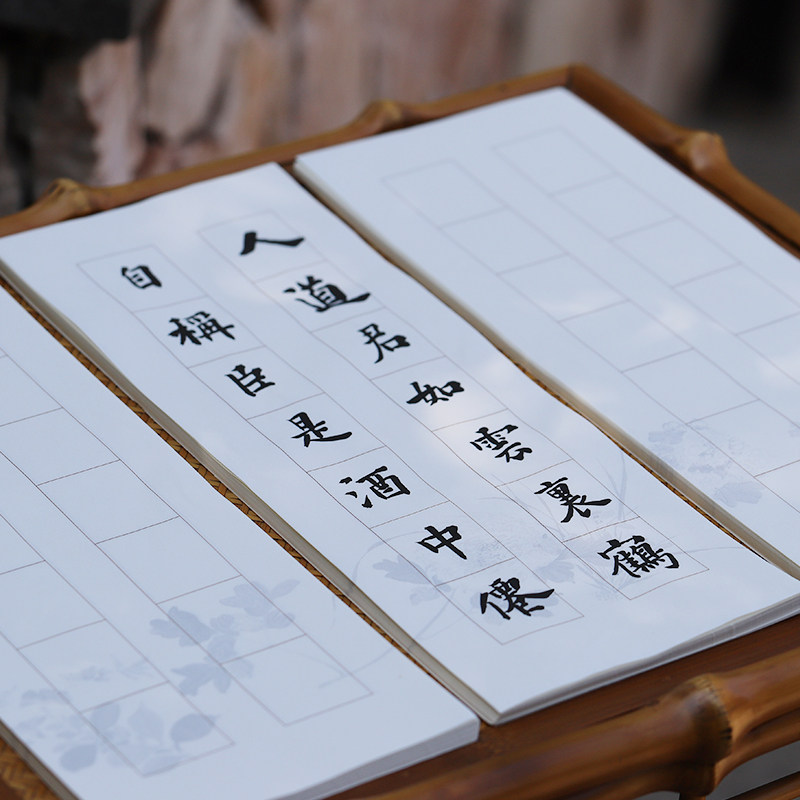 人道君如雲裏鶴
自稱臣是酒中僊